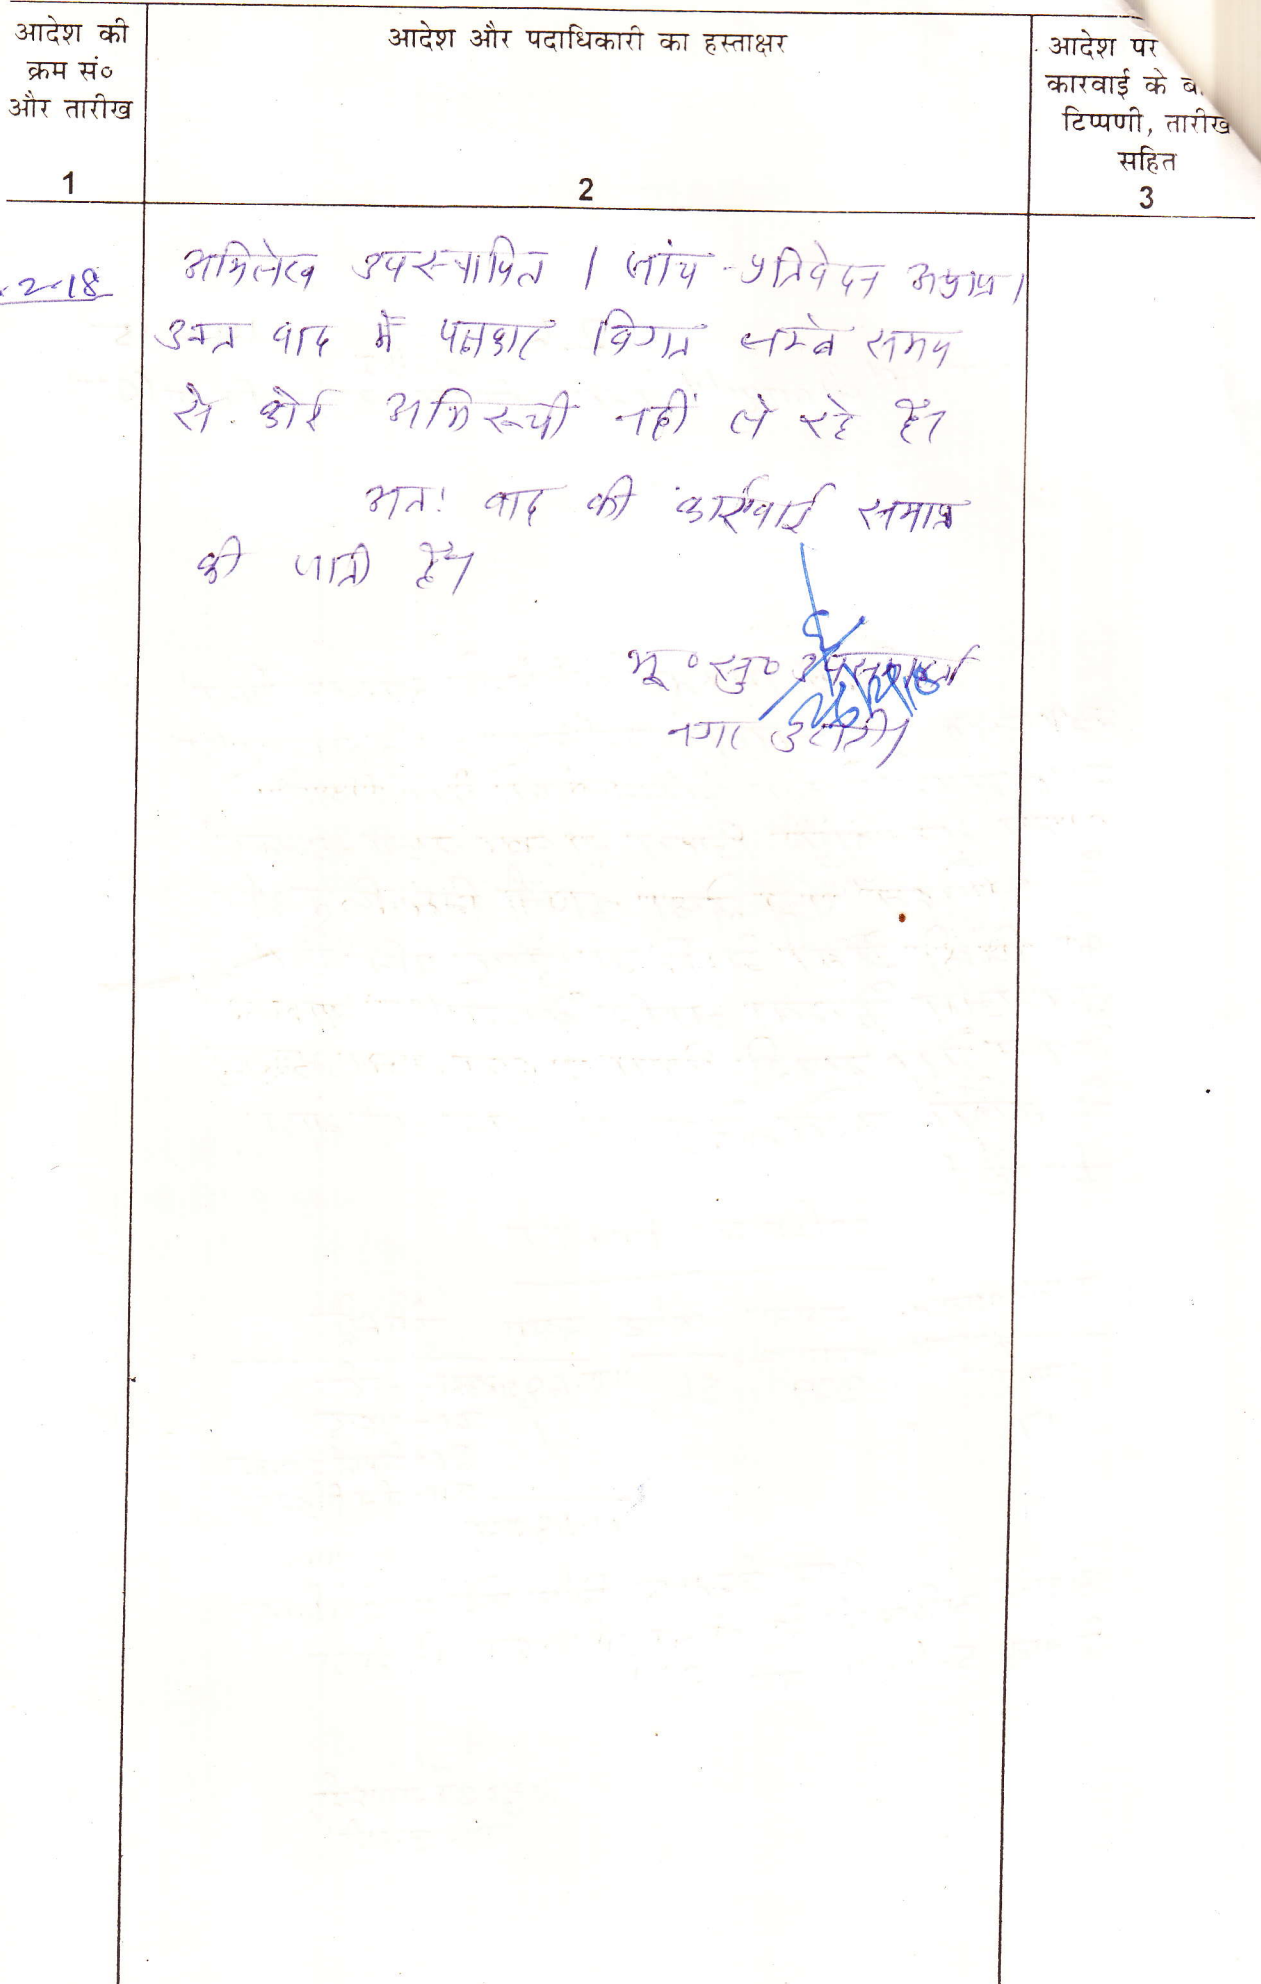 आदेश की
क्रम सं०
और तारीख
1
आदेश और पदाधिकारी का हस्ताक्षर
2
आदेश पर
कारवाई के
टिप्पणी, तारीख
सहित
3
.2-18
अभिलेख उपस्थापित । जांच-प्रतिवेदन अप्राप्त ।
उक्त वाद में पक्षकार विगत लम्बे समय
से कोई अभिरूची नहीं ले रहे हैं।
अतः वाद की कार्रवाई समाप्त
की जाती है।
भू० सु० उपसमाहर्ता
नगर उंटारी।